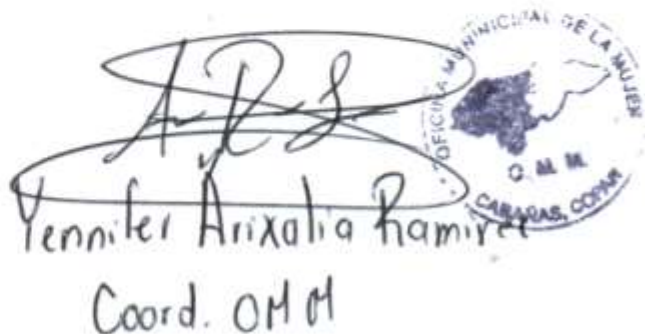 OFICINA MUNINICIPAL DE LA MUJER
O.M.M.
CABAÑAS, COPAN
Yennifer Arixalia Ramirez
Coord. OMM